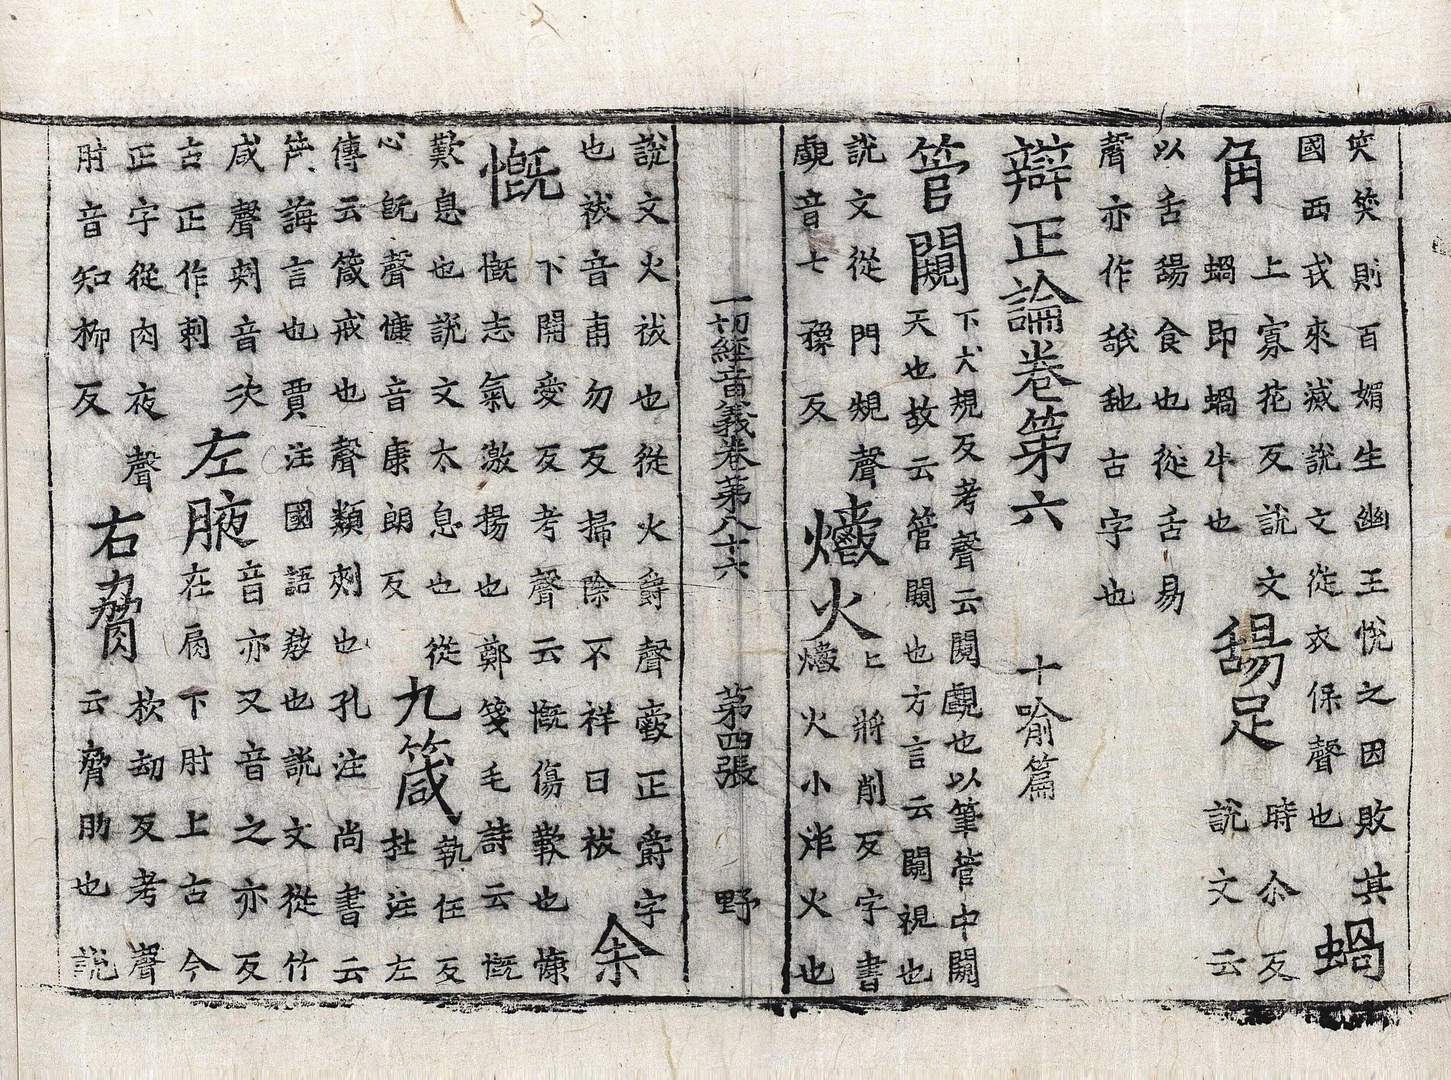 突笑則百媚生幽王悅之因敗其
國西戎來滅說文從衣保聲也
蝸角
上寡花反說文
蝸即蝸牛也
舓足
時尒反
說文云
以舌舓食也從舌易
聲亦作舐䑛古字也
辯正論卷第六　十喻篇
管闚
下犬規反考聲云闚覷也以筆管中闚
天也故云管闚也方言云闚視也
說文從門規聲
覷音七豫反
爝火
上將削反字書
爝火小炸火也
一切經音義卷第八十六　第四張　野
說文火祓也從火爵聲正爵字
也祓音甫勿反掃除不祥曰祓
余慨
下開愛反考聲云慨傷歎也慷
慨志氣激揚也鄭箋毛詩云慨
歎息也說文太息也從
心旣聲慷音康朗反
九箴
執任反
杜注左
傳云箴戒也聲類刾也孔注尚書云
箴誨言也賈注國語教也說文從竹
咸聲刾音次
古正作刺
左腋
音亦又音之亦反
在肩下肘上古今
正字從肉夜聲
肘音知柳反
右脅
杴劫反考聲
云脅肋也說